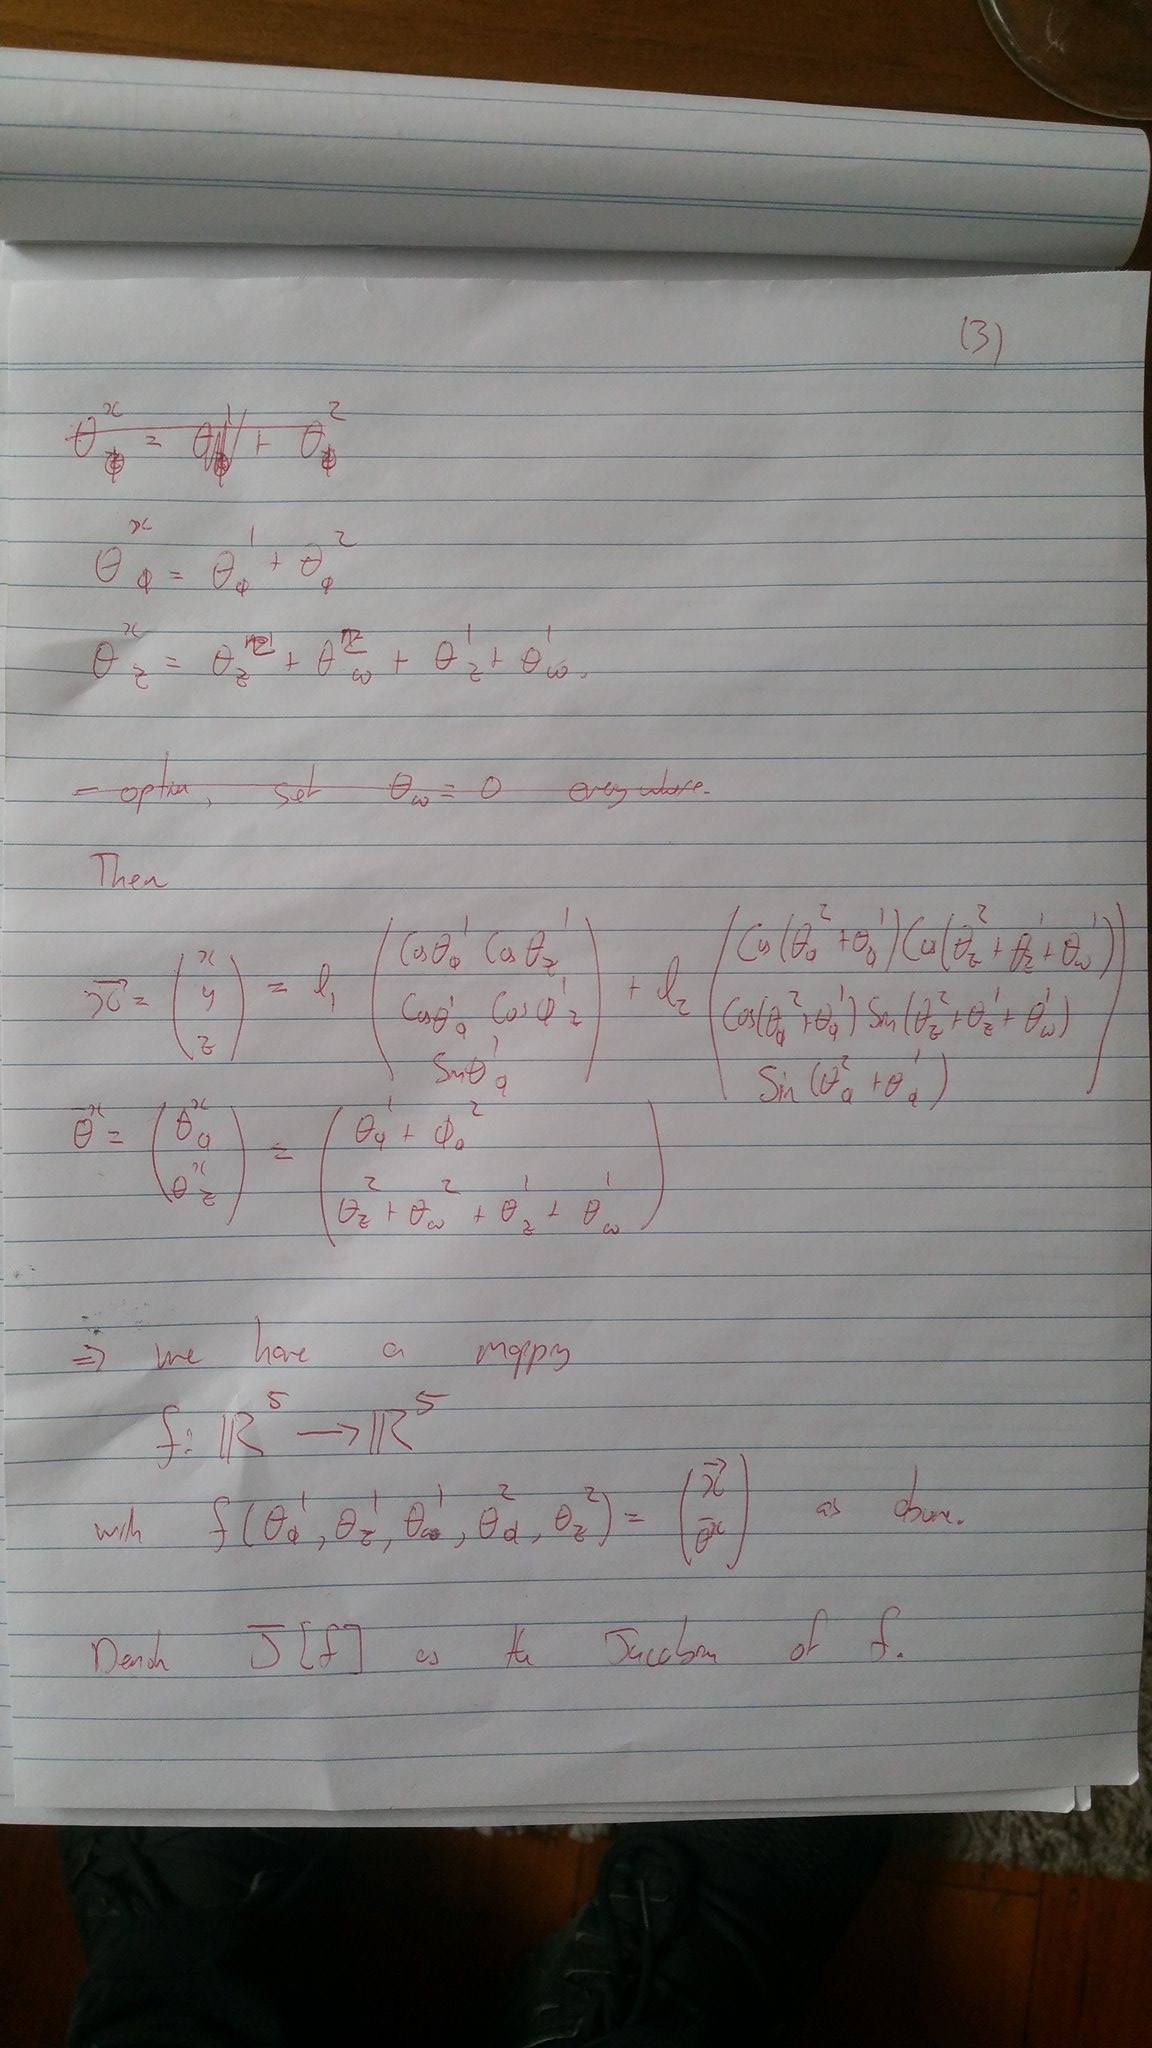 (3)
θ^x_φ = θ^1_φ + θ^2_φ
θ^x_φ = θ^1_φ + θ^2_φ
θ^x_z = θ^2_z + θ^2_ω + θ^1_z + θ^1_ω.
- option, set θ_ω = 0 everywhere.
Then
x⃗ = (x y z) = l_1 (Cosθ^1_φ Cosθ^1_z Cosθ^1_φ Cosφ^1_z Sinθ^1_φ) + l_2 (Cos(θ^2_φ+θ^1_φ)Cos(θ^2_z+θ^1_z+θ^1_ω) Cos(θ^2_φ+θ^1_φ)Sin(θ^2_z+θ^1_z+θ^1_ω) Sin(θ^2_φ+θ^1_φ))
θ̄^x = (θ^x_φ θ^x_z) = (θ^1_φ + φ^2_φ θ^2_z + θ^2_ω + θ^1_z + θ^1_ω)
⇒ we have a mapping
f: ℝ^5 → ℝ^5
with f(θ^1_φ, θ^1_z, θ^1_ω, θ^2_φ, θ^2_z) = (x⃗ θ̄^x) as above.
Denote J̄[f] as the Jacobian of f.